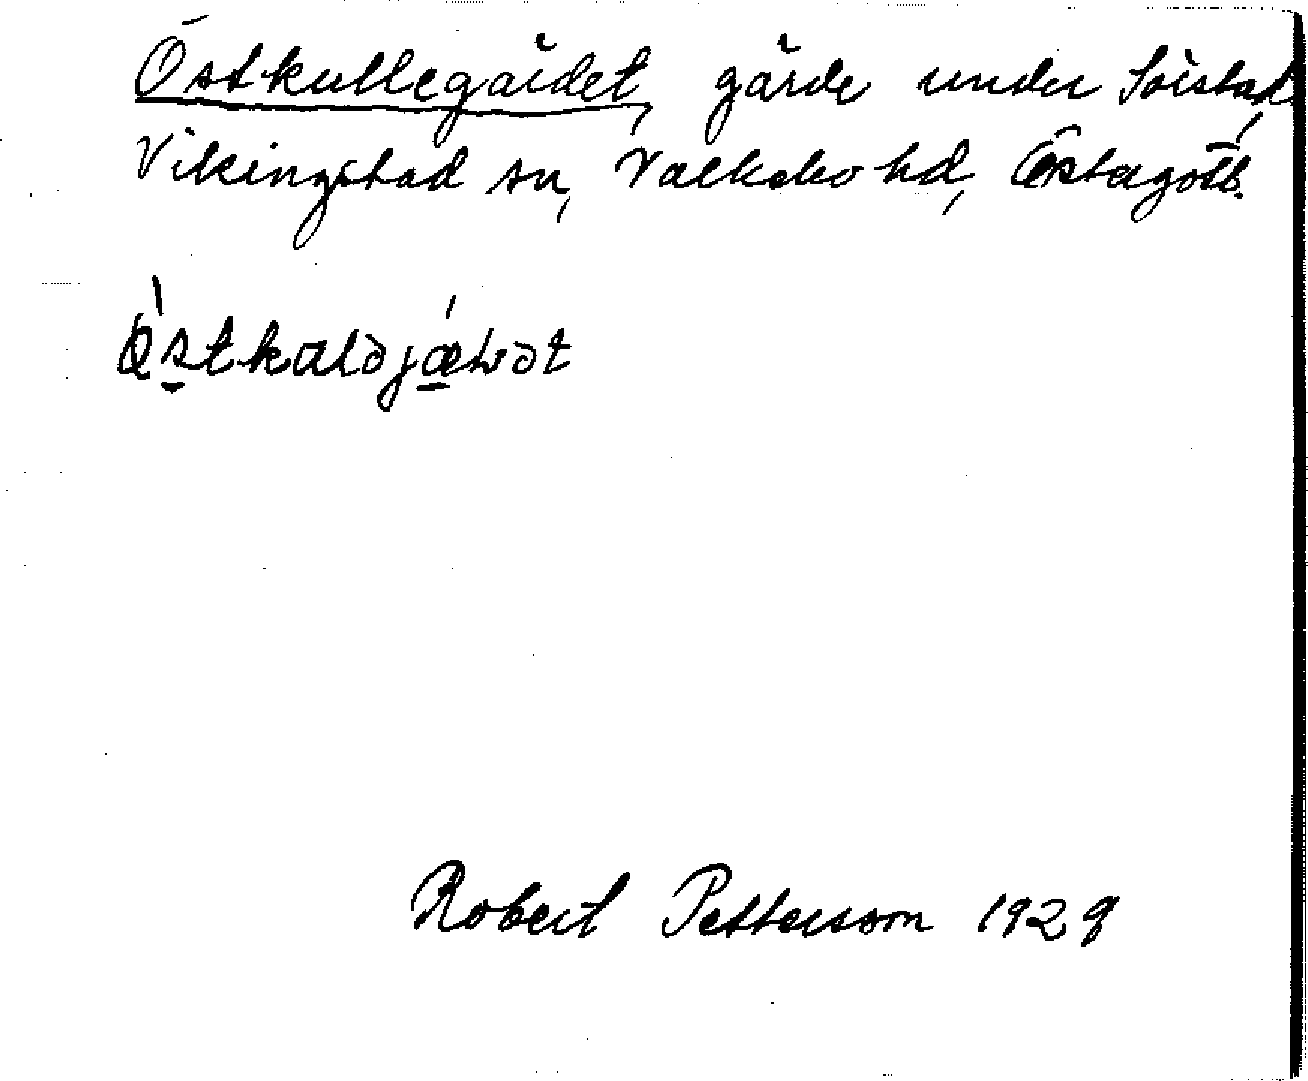 Östkullegärdet, gärde under Sörstad
Vikingstad sn, Valkebo hd, Östergötl.
Robert Petterson 1929